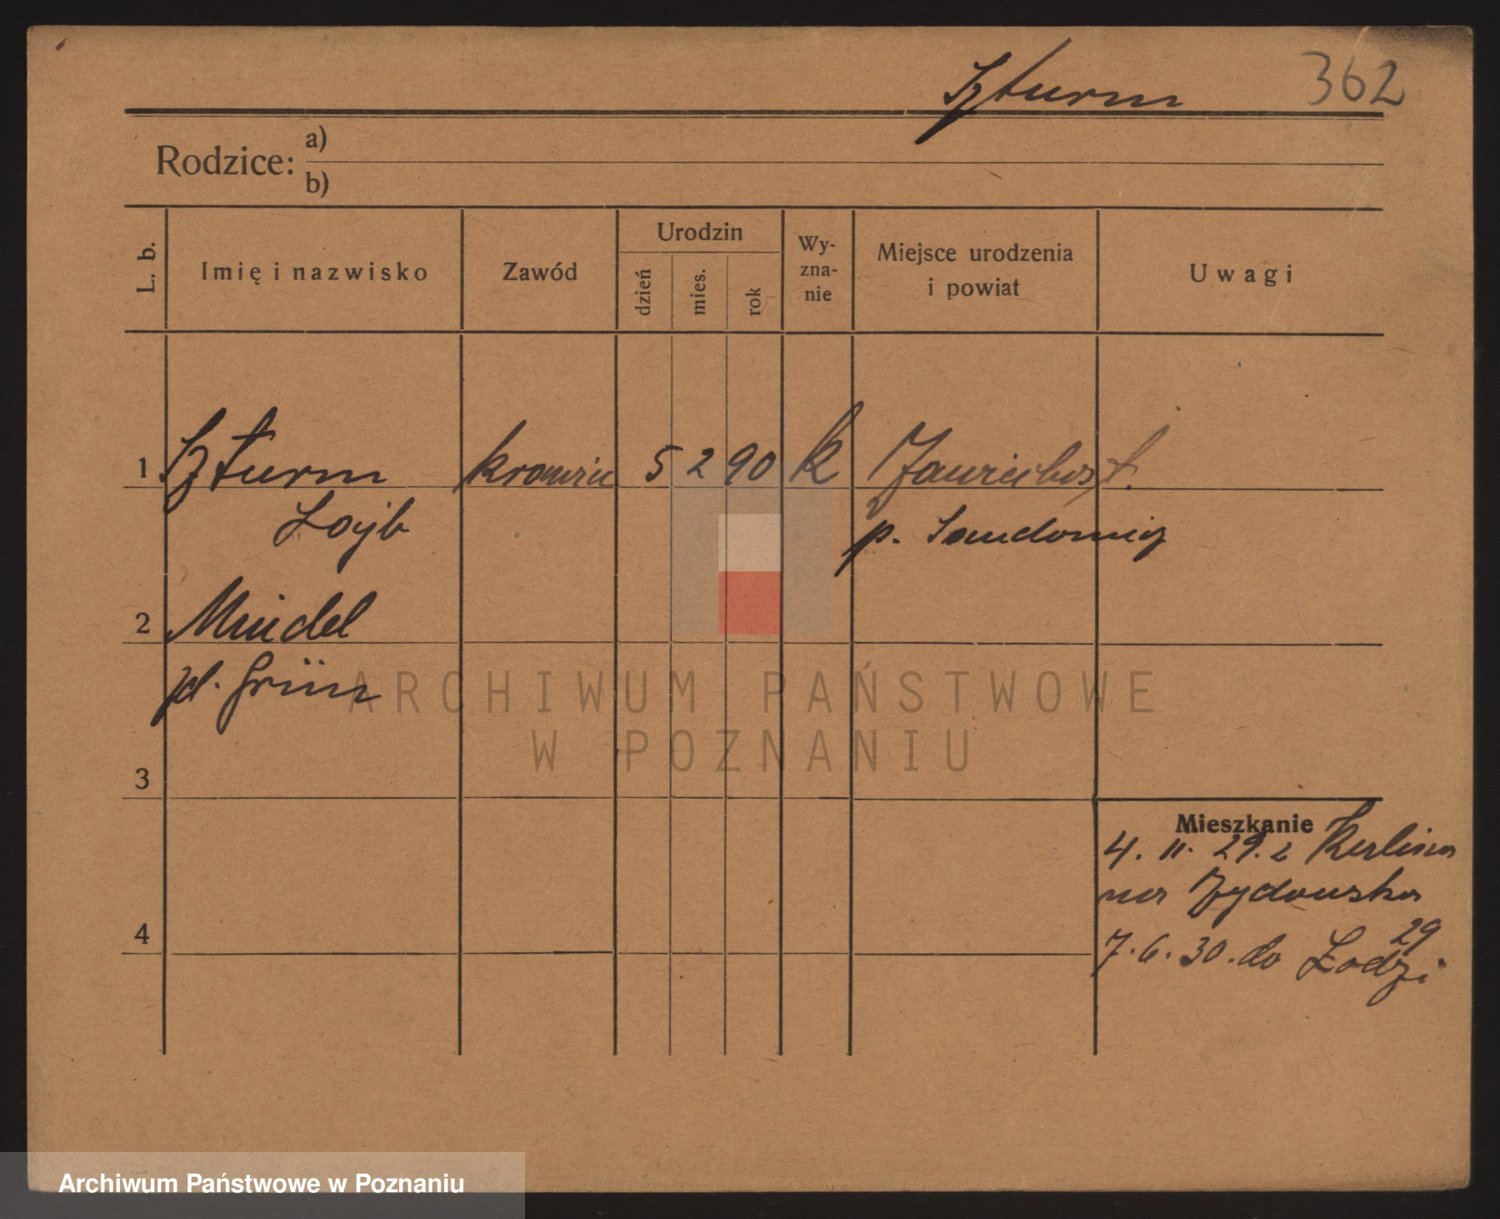 Szturm 362
Rodzice: a)
b)
L. b. Imię i nazwisko Zawód Urodzin dzień mies. rok Wy-zna-nie Miejsce urodzenia i powiat Uwagi
1 Szturm krawiec 5 2 90 k
Lajb p. Sandomierz
2 Mindel
zd. Grün
ARCHIWUM PAŃSTWOWE
W POZNANIU
3
Mieszkanie
4. 11. 29. z Berlina
na Żydowska
29
4 7. 6. 30. do Łodzi
Archiwum Państwowe w Poznaniu